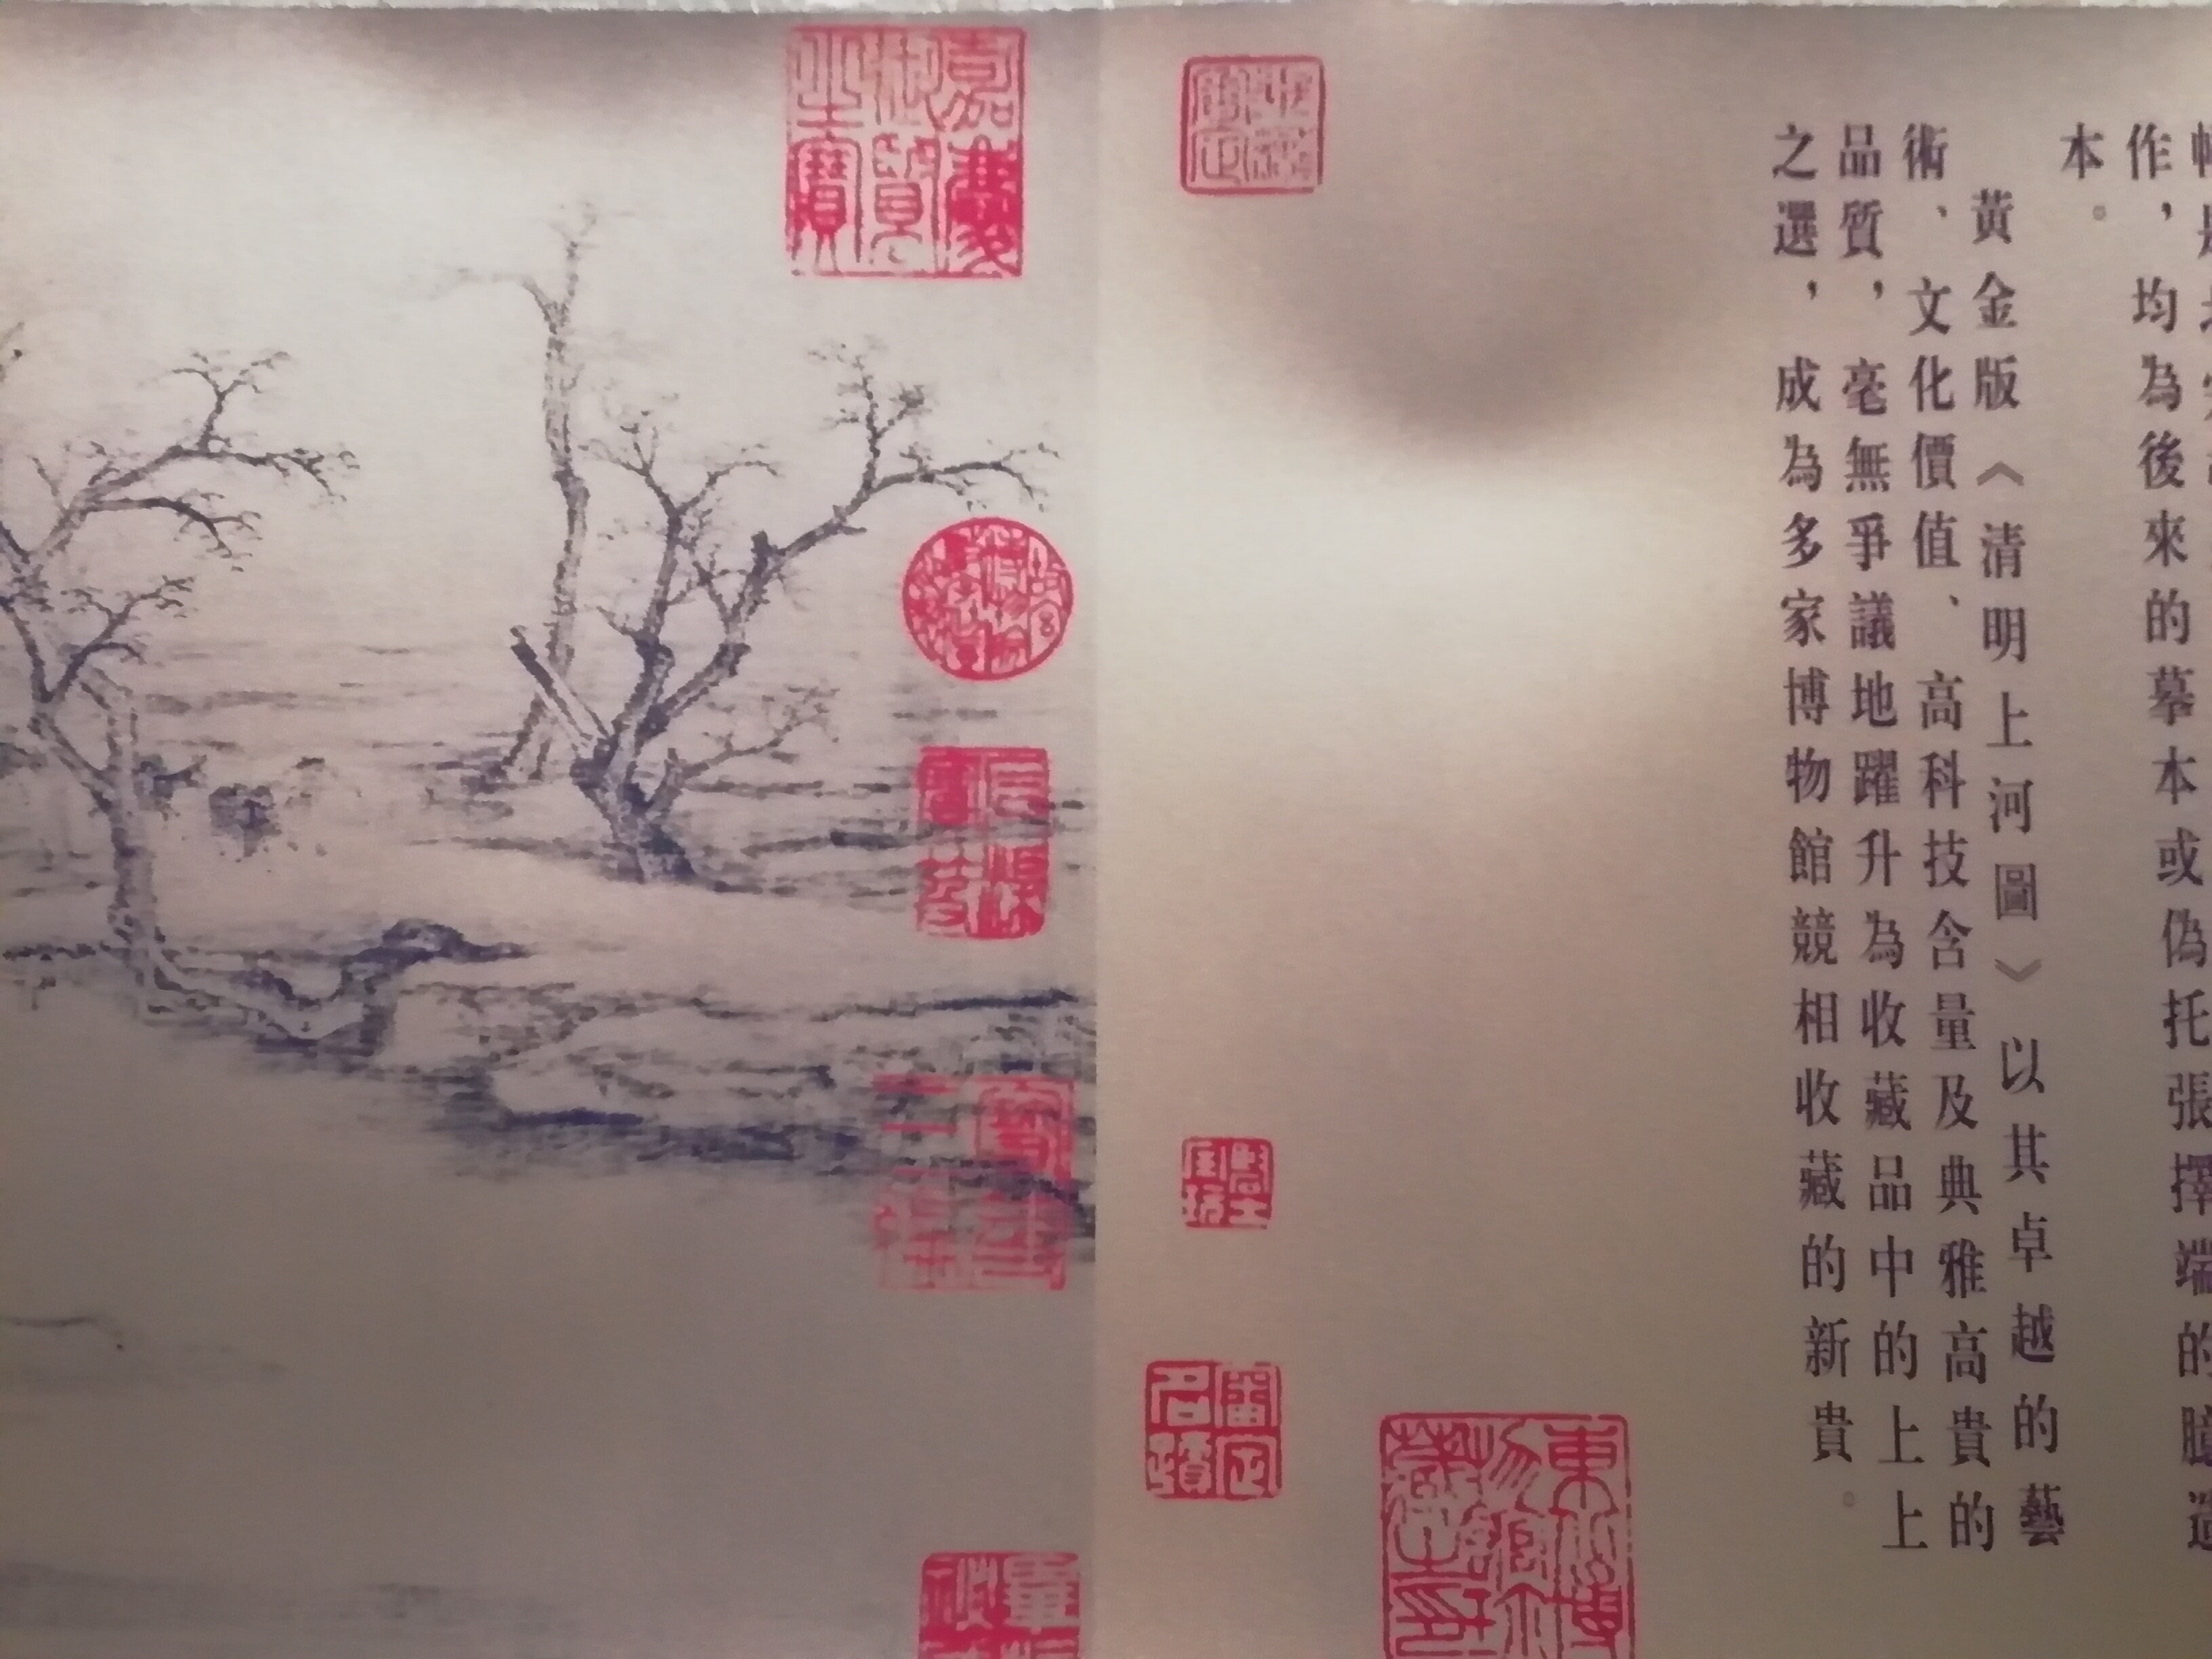 作，均為後來的摹本或偽托張擇端的臆造
本。
黃金版《清明上河圖》以其卓越的藝
術、文化價值、高科技含量及典雅高貴的
品質，毫無爭議地躍升為收藏品中的上上
之選，成為多家博物館競相收藏的新貴。
東北博物館珍藏之印
嘉慶御覽之寶